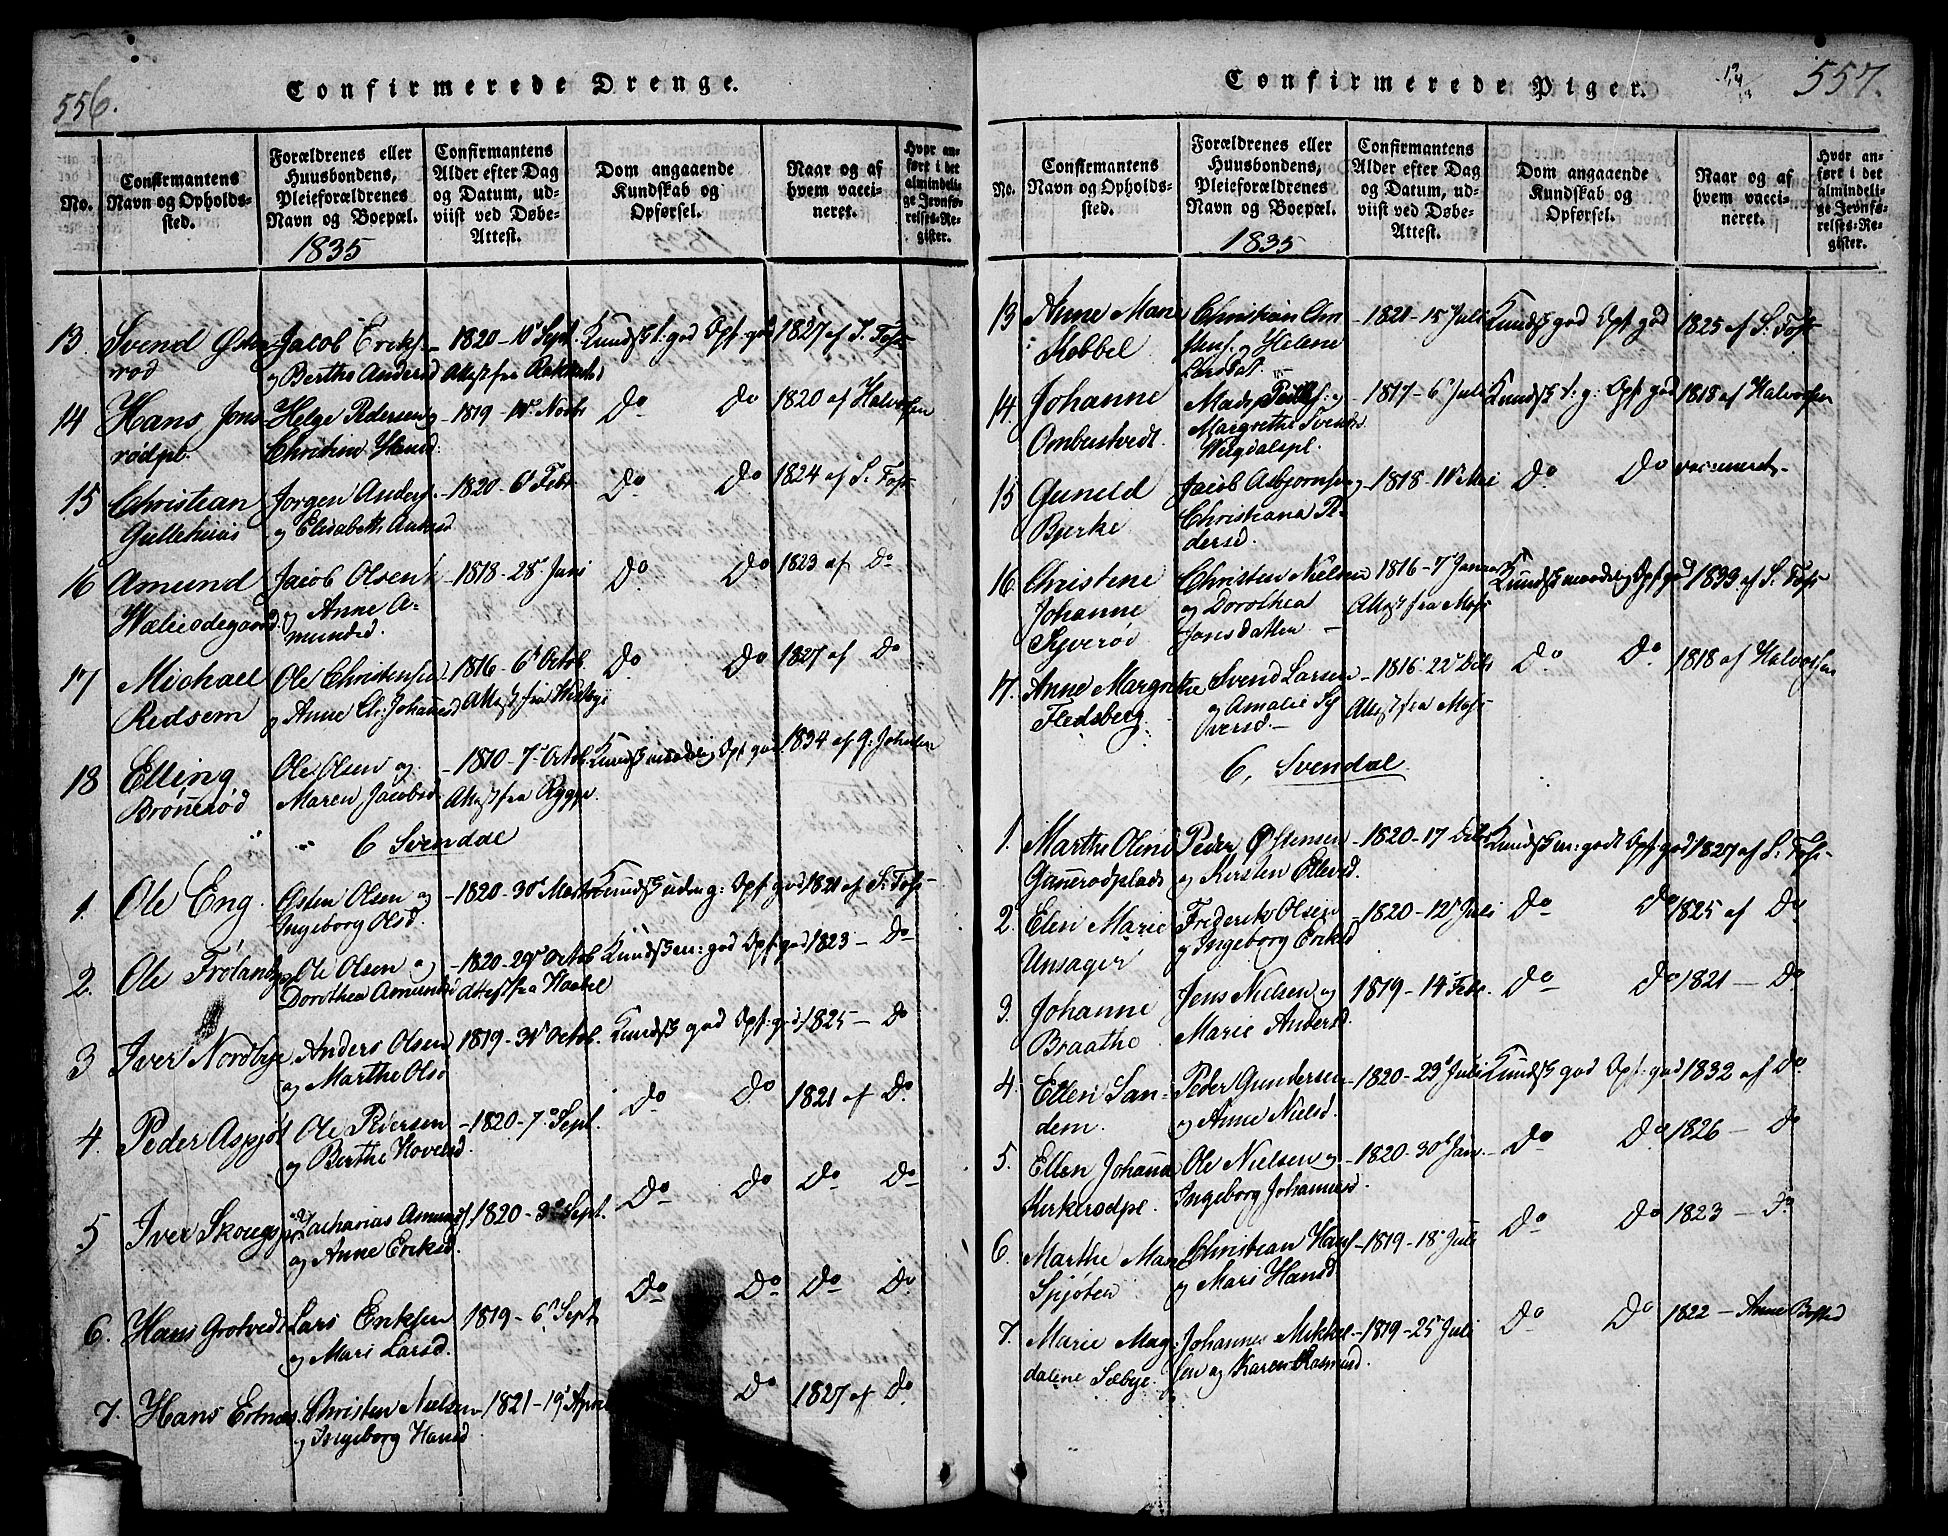 556.
Confirmerede Drenge.
No.
Confirmantens Navn og Opholdssted.
Forældrenes eller Huusbondens, Pleieforældrenes Navn og Boepæl.
1835
Confirmantens Alder efter Dag og Datum, udviist ved Døbe-Attest.
Dom angaaende Kundskab og Opførsel.
Naar og af hvem vaccineret.
Hvor anført i det almindelige Jevnførelses-Register.
13. Svend Jacob Eriks. – 1820 – 10 Sept. Kundsk. t. god Opf. god 1827 af S. Foss
og Berthe Andersd Attest fra
14 Hans Jons- Helge Pedersen og – 1819 – Novbr Do Do 1820 af Halvorsen
rødpl. Christine Hansd.
15 Christian Jørgen Anders. – 1820 – 6 Febr Do Do 1824 af S. Foss
Gullehuus og Elisabeth
16 Amund Jacob Olsen – 1818 – 28 Do Do 1823 af Do
og Anne A-
mundsd.
17 Michael Ole Christensen – 1816 – 6 Octob. Do Do 1827 af Do
Redsem og Anne Attest fra
18 Elling Ole Olsen og – 1810 – 7 Octob. Kundsk maadelig Opf god 1834 af
Brönerød Maren Jacobsd. Attest fra Rygge.
6 Svendal
1. Ole Eng. Østen Olsen og – 1820 – 30 Marts Kundsk g: Opf: god 1821 af S: Foss
Ingeborg Olsd.
2. Ole Frölandspl Ole Olsen og – 1820 – 29 Octob Kundsk m: god Opf: god 1823 – Do
Dorothea Amundsd Attest fra Haabel
3 Iver Nordbye Anders Olsen 1819 – 31 Octob. Kundsk god Opf: god 1825 – Do
og Marthe Olsd
4. Peder Aspjøt Ole Pedersen – 1820 – 7 Sept. Do Do 1821 af Do
og Berthe
5 Iver Zacharias – 1820 – Sept. Do Do Do Do
og Anne Eriksd.
6. Hans Grotvedt Lars Eriksen 1819 – 6 Sept. Do Do Do Do
og Mari Larsd.
7. Hans Ertnæs. Christen Nielsen – 1821 – 19 April Do 1827 af Do
og Ingeborg Hansd
557.
Confirmerede Piger.
No.
Confirmantens Navn og Opholdssted.
Forældrenes eller Huusbondens, Pleieforældrenes Navn og Boepæl.
1835
Confirmantens Alder efter Dag og Datum, udviist ved Døbe-Attest.
Dom angaaende Kundskab og Opførsel.
Naar og af hvem vaccineret.
Hvor anført i det almindelige Jevnførelses-Register.
13 Anne Marie Christian Chri – 1821 – 15 Juli Kundsk god Opf god 1825 af S. Foss
Mobbel stens. og Helene
Larsdat.
14. Johanne Mads og 1817 – 6 Juli Kundsk t. g: Opf god 1818 af Halvorsen
Ombustvedt. Margrethe Svends
15 Gunild Jacob Asbjørnsen – 1818 – Mai Do Do
Bjerke Christiana Pe-
dersd.
16. Christine Christen Nielsen 1816 – 7 Januar Kundsk maadelig Opf god 1833 af S: Foss
Johanne og Dorothea Attest fra Moss
Jonsdatter –
17. Anne Margrethe Svend Larsen – 1816 – 22 Decbr Do Do 1818 af Halvorsen
Fledsberg og Amalie Sy- Attest fra Moss
versd. –
6, Svendal.
1. Marthe Oline Peder Østensen – 1820 – 17 Kundsk m: godt Opf: god 1827 af S: Foss
Ganerødplads og Kirsten Ellevsd.
2. Elen Marie Frederik Olsen – 1820 – 12 Juli Do Do 1825 af Do
Unsager og Ingeborg Eriksd
3. Johanne Jens Nielsen og 1819 – 14 Febr. Do Do 1821 – Do
Braathe Marie Andersd.
4. Ellen San- Peder Gundersen – 1820 – 23 Juli Kundsk god Opf: god 1832 af Do
dem. og Anne Nielsd.
5. Ellen Johanne Ole Nielsen og – 1820 – 30 Jan. – Do Do 1826 – Do
Kirkerødpl. Ingeborg Johannesd.
6. Marthe Marie Christian Hans – 1819 – 18 Juli Do Do 1823 – Do
Spjøten og Mari Hansd
7. Marie Mag- Johannes Mikkel – 1819 – 25 Juli Do Do 1822 – Anne
dalene Sæbye. sen og Karen Rasmusd.